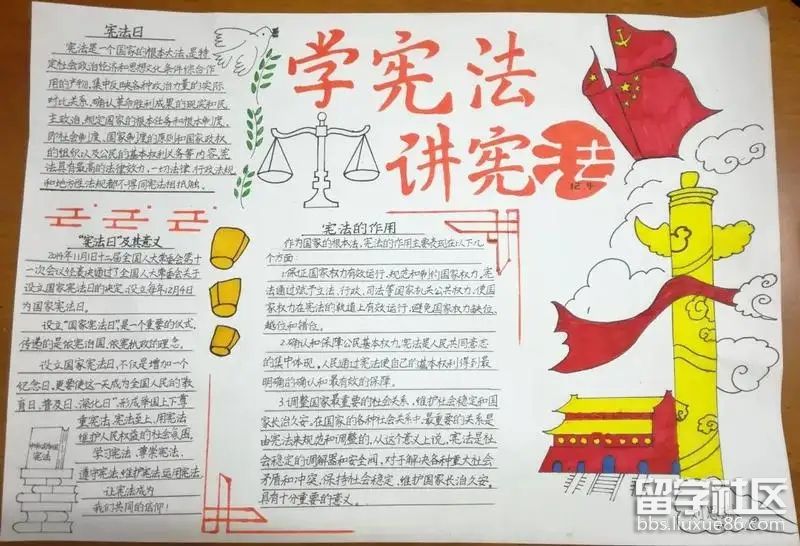 宪法日
宪法是一个国家的根本大法,是特
定社会政治经济和思想文化条件综合作
用的产物,集中反映各种政治力量的实际
对比关系,确认革命胜利成果的现实和民
主政治,规定国家的根本任务和根本制度,
即社会制度、国家制度的原则和国家政权
的组织以及公民的基本权利义务等内容,宪
法具有最高的法律效力,一切法律、行政法规
和地方性法规都不得同宪法相抵触。
学宪法
讲宪法
12.4
“宪法日”及其意义
2014年11月1日十二届全国人大常委会第十
一次会议经表决通过了全国人大常委会关于
设立国家宪法日的决定,设立每年12月4日
为国家宪法日。
设立“国家宪法日”是一个重要的仪式,
传递的是依宪治国、依宪执政的理念。
设立国家宪法日,不仅是增加一个
纪念日,更要使这一天成为全国人民的教
育日、普及日、深化日”,形成举国上下尊
重宪法、宪法至上、用宪法
维护人民权益的社会氛围,
学习宪法、尊崇宪法、
遵守宪法、维护宪法、运用宪法,
让宪法成为
我们共同的信仰!
宪法
宪法的作用
作为国家的根本法,宪法的作用主要表现在以下几
个方面:
1.保证国家权力有效运行、规范和制约国家权力,宪
法通过赋予立法、行政、司法等国家机关公共权力,使国
家权力在宪法的轨道上有效运行,避免国家权力缺位、
越位和错位。
2.确认和保障公民基本权力,宪法是人民共同意志
的集中体现,人民通过宪法使自己的基本权利得到最
明确的确认和最有效的保障。
3.调整国家最重要的社会关系,维护社会稳定和国
家长治久安,在国家的各种社会关系中,最重要的关系是
由宪法来规范和调整的,从这个意义上说,宪法是社
会稳定的调解器和安全阀,对于解决各种重大社会
矛盾和冲突,保持社会稳定,维护国家长治久安,
具有十分重要的意义。
留学社区
bbs.liuxue86.com